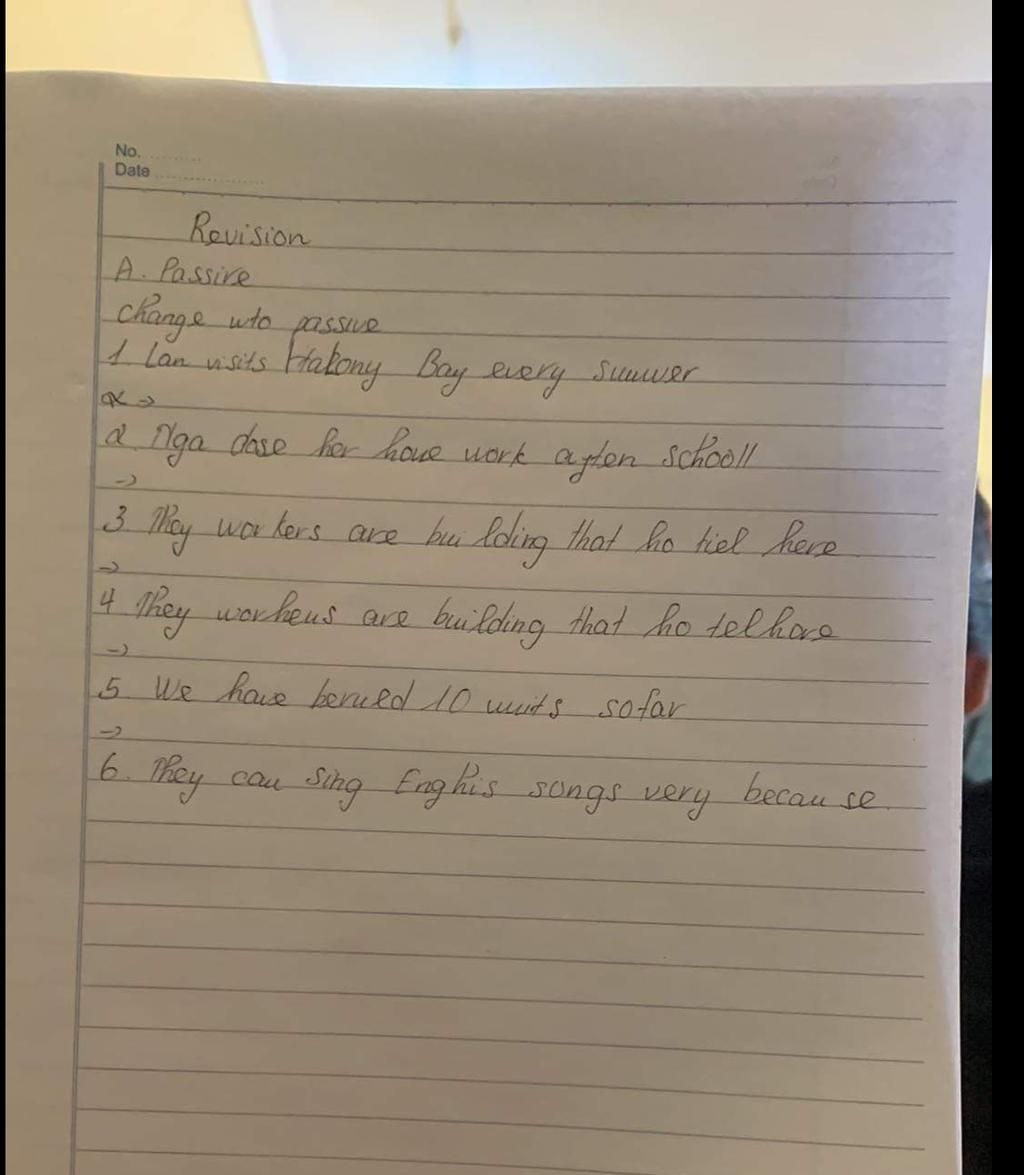 No. ..........
Date ....................
Revision
A. Passive
Change uto passive
1. Lan visits Habony Bay every Summer
→
2. Nga dose her houe work aften schooll
→
3 They workers are bui lding that ho tiel here
→
4 They workeus are building that ho tel hore
→
5 We have berued 10 units sofar
→
6. They can sing Enghis songs very becau se.